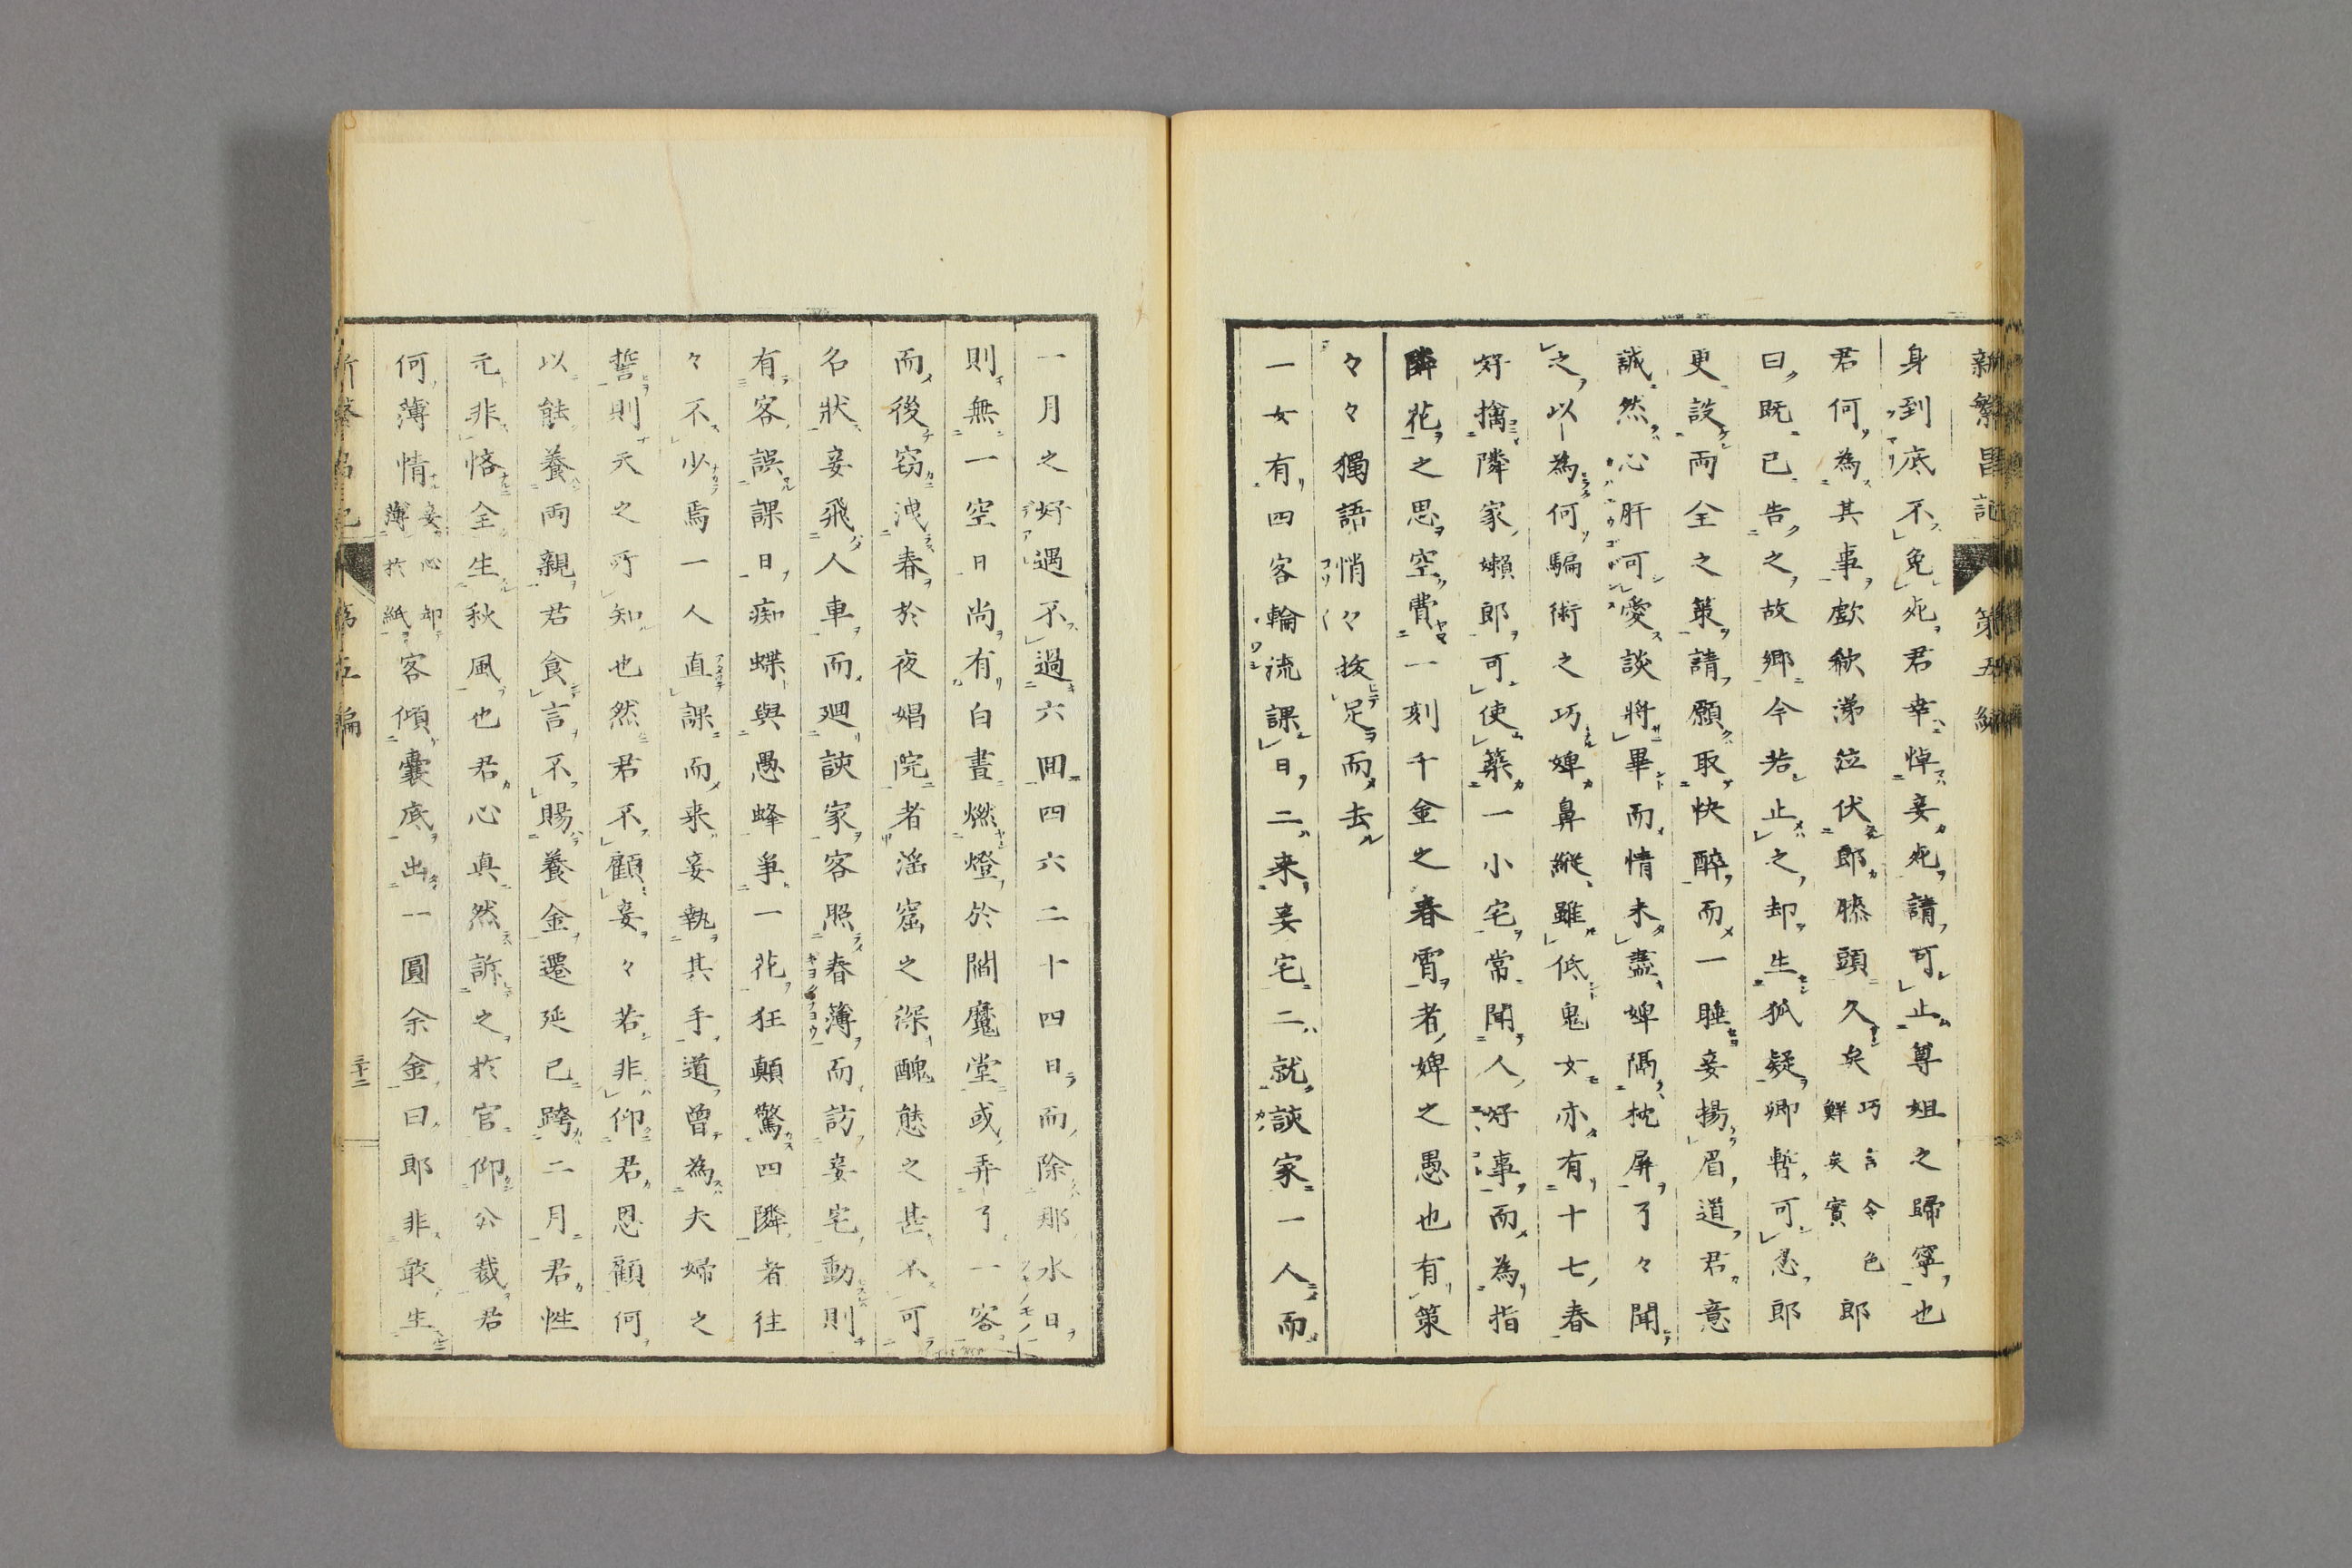 新繁昌記 第五編
身到底不免死君幸悼妾死請可止尊姐之歸寧也
君何為其事歔欷涕泣伏郎膝頭久矣巧言令色鮮矣實郎
曰既已告之故郷今若止之却生狐疑卿暫可忍郎
更設両全之策請願取快醉而一睡妾揚眉道君意
誠然心肝可愛談將畢而情未盡婢隔枕屏了々聞
之以為何騙術之巧婢鼻縱雖低鬼女亦有十七春
好擒隣家嬾郎可使築一小宅常聞人好事而為指
隣花之思空費一刻千金之春宵者婢之愚也有策
々々獨語悄々拔足而去
一女有四客輪流課日二来妾宅二就談家一人而
一月之好遇不過六囘四六二十四日而除那水日
則無一空日尚有白晝燃燈於閻魔堂或弄了一客
而後窃洩春於夜娼院者滛窟之深醜態之甚不可
名狀妾飛人車而廻談家客照春簿而訪妾宅動則
有客誤課日痴蝶與愚蜂爭一花狂顛驚四隣者往
々不少焉一人直課而来妾執其手道曽為夫婦之
誓則天之所知也然君不顧妾々若非仰君恩顧何
以能養両親君食言不賜養金遷延已跨二月君性
元非悋全生秋風也君心真然訴之於官仰公裁君
何薄情妾心却薄於紙客傾嚢底出一圓余金曰郎非敢生
新繁昌記 第五編 三十二